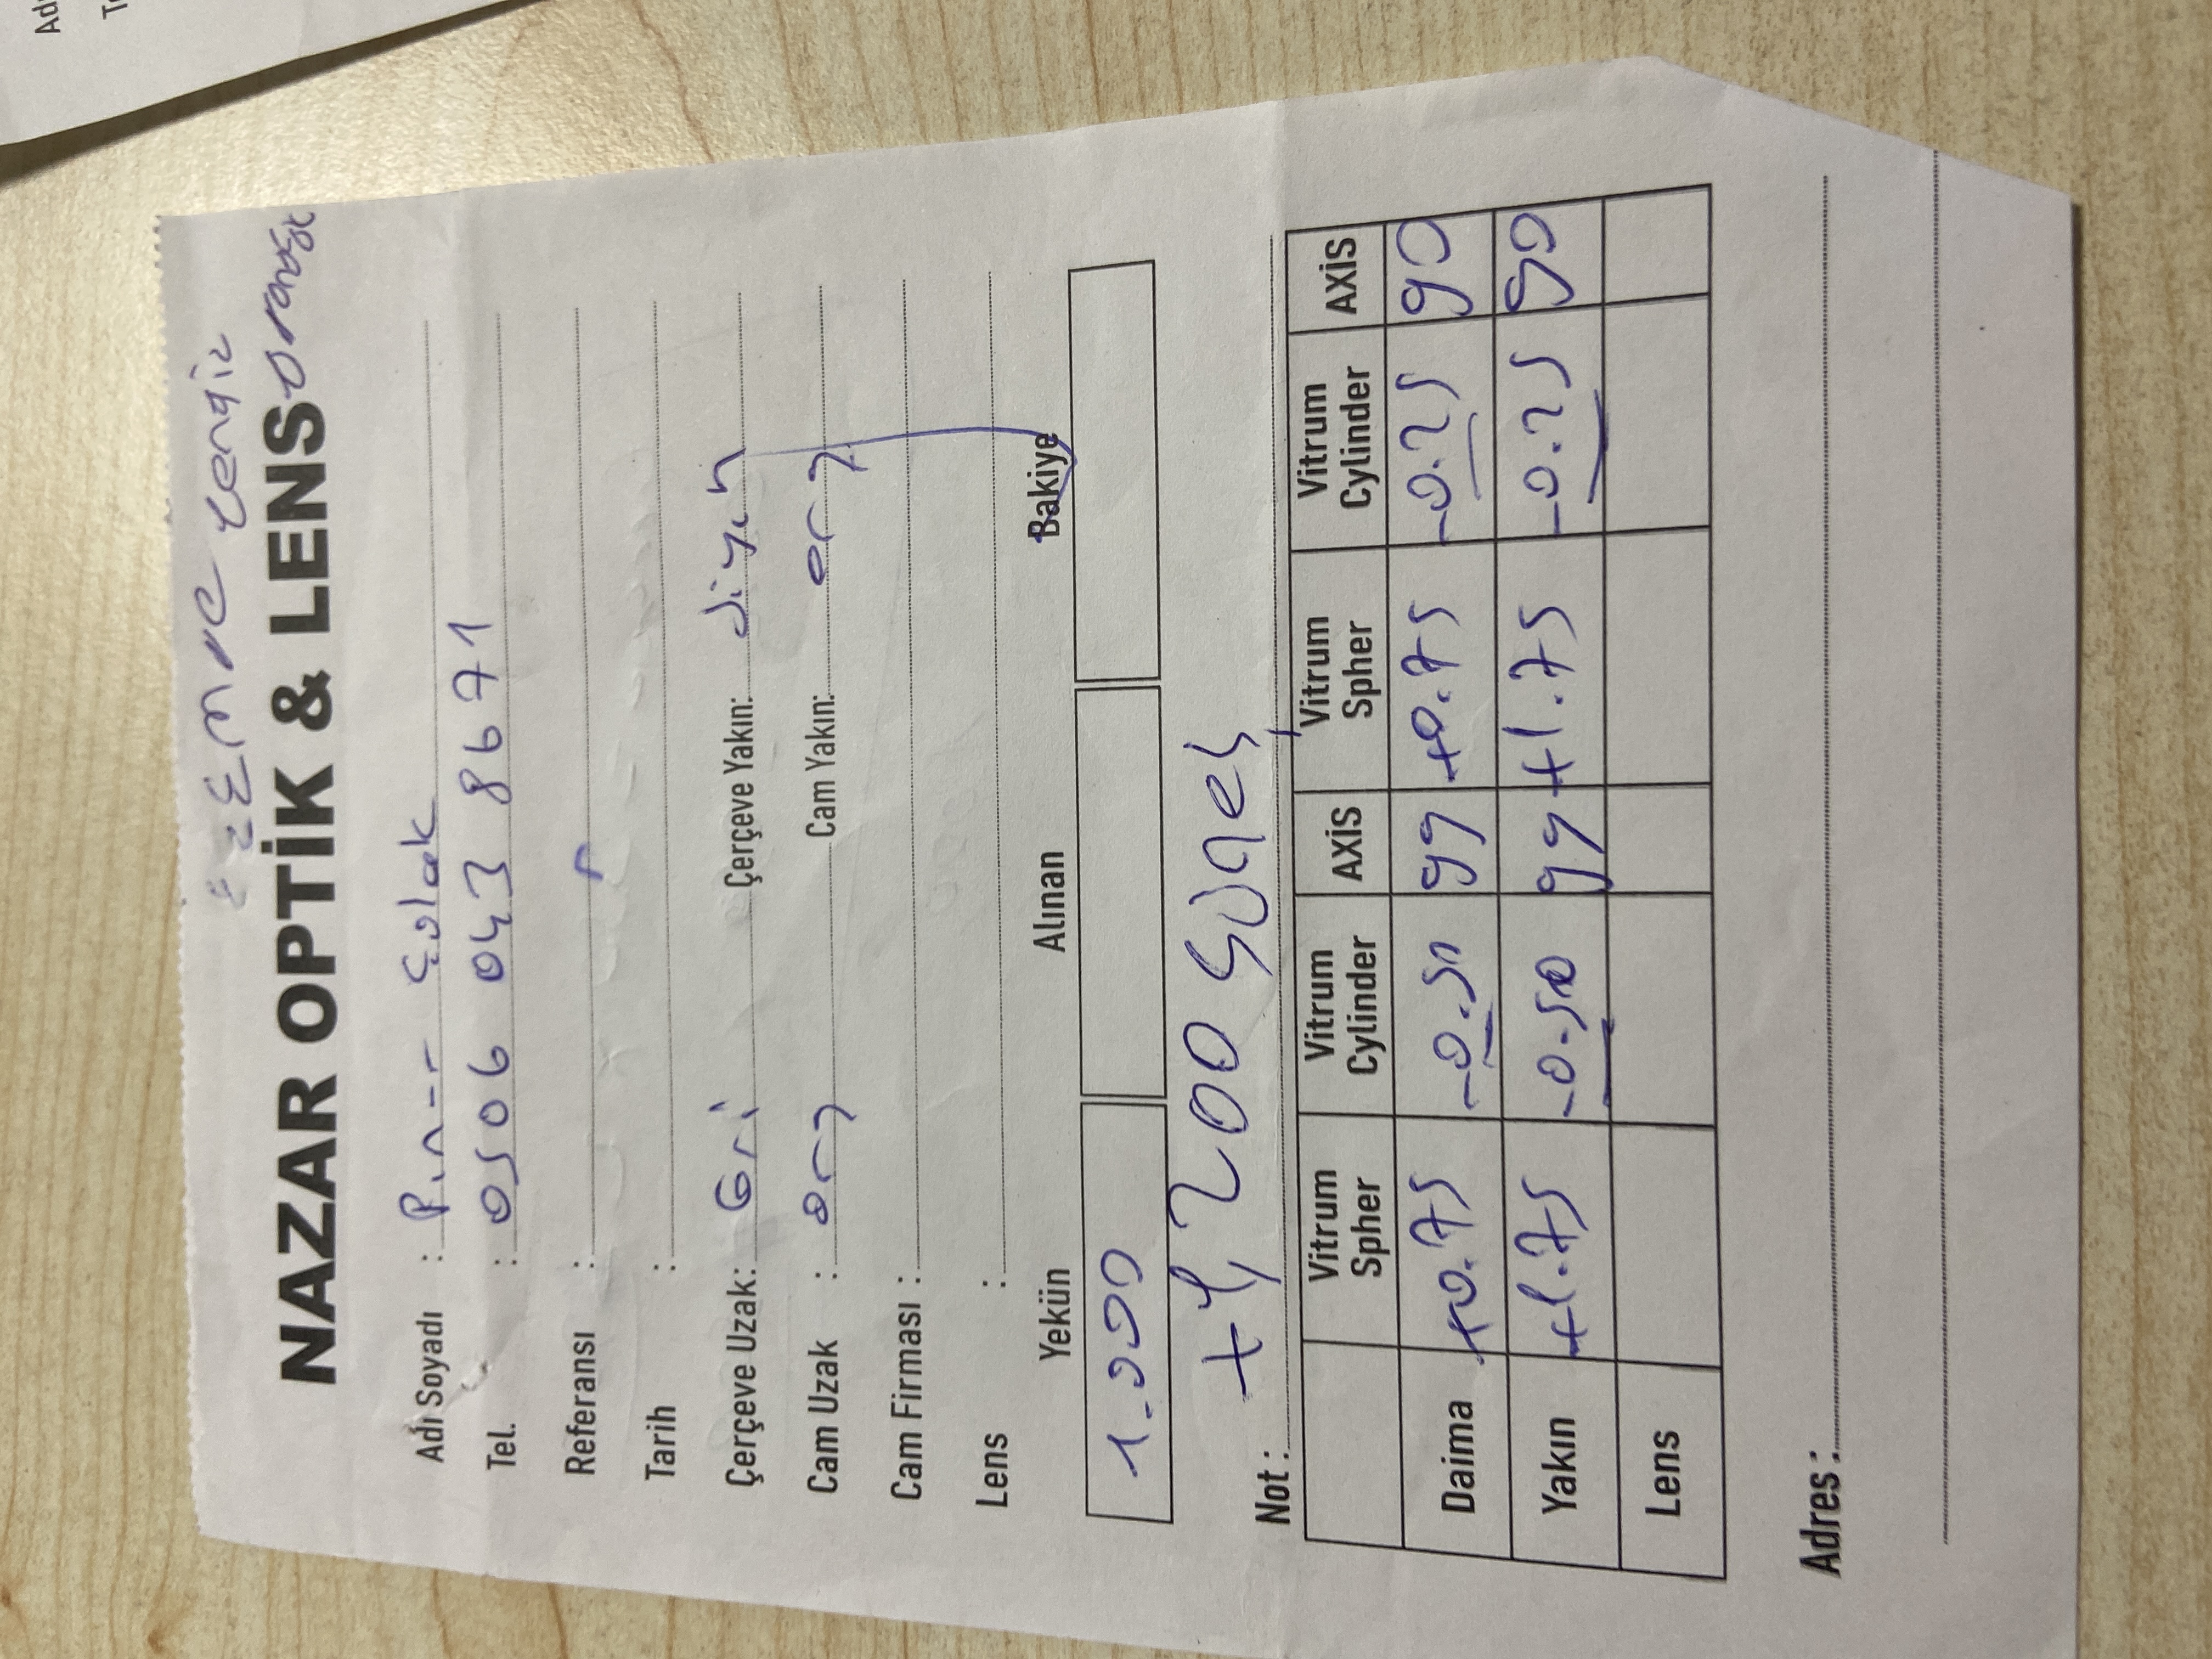 EMRE Cengiz
NAZAR OPTİK & LENS
Adı Soyadı : Pınar Çolak
Tel. : 0506 043 8671
Referansı :
Tarih :
Çerçeve Uzak: Gri Çerçeve Yakın: Siyah
Cam Uzak : org Cam Yakın: org
Cam Firması :
Lens :
Yekün Alınan Bakiye
1.000
+1,200 Güneş
Not :
Vitrum Spher Vitrum Cylinder AXİS Vitrum Spher Vitrum Cylinder AXİS
Daima +0.75 -0.50 99 +0.75 -0.25 90
Yakın +1.75 -0.50 99 +1.75 -0.25 90
Lens
Adres :
Ad
Te